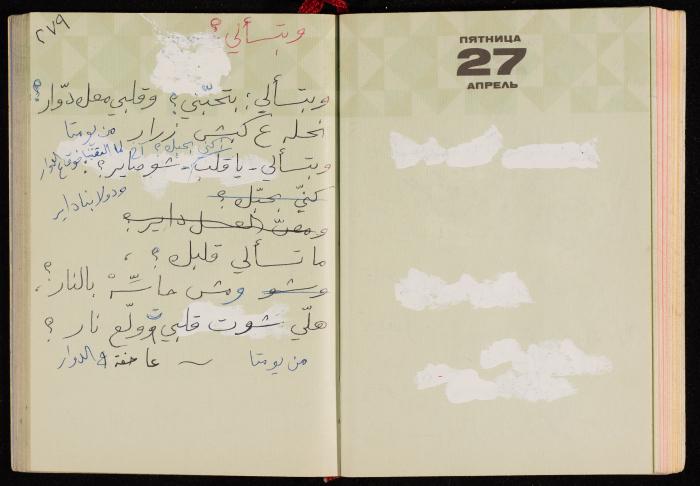 ٢٧٩
وبتسألي؟
وبتسألي؛ بتحبّني؟ وقلبي معك دوّار؟
نحله ع كبش زرار من يومتا
وبتسألي - يا قلب - شو صاير؟
كنّي بحبّك؟
ودولابنا داير
ما تسألي قلبك؟
وشو ومش حاسّه بالنار؟
هلّي شوت قلبي وولّع نار؟
من يومتا ~ عا حفة الدوار
ПЯТНИЦА
27
АПРЕЛЬ